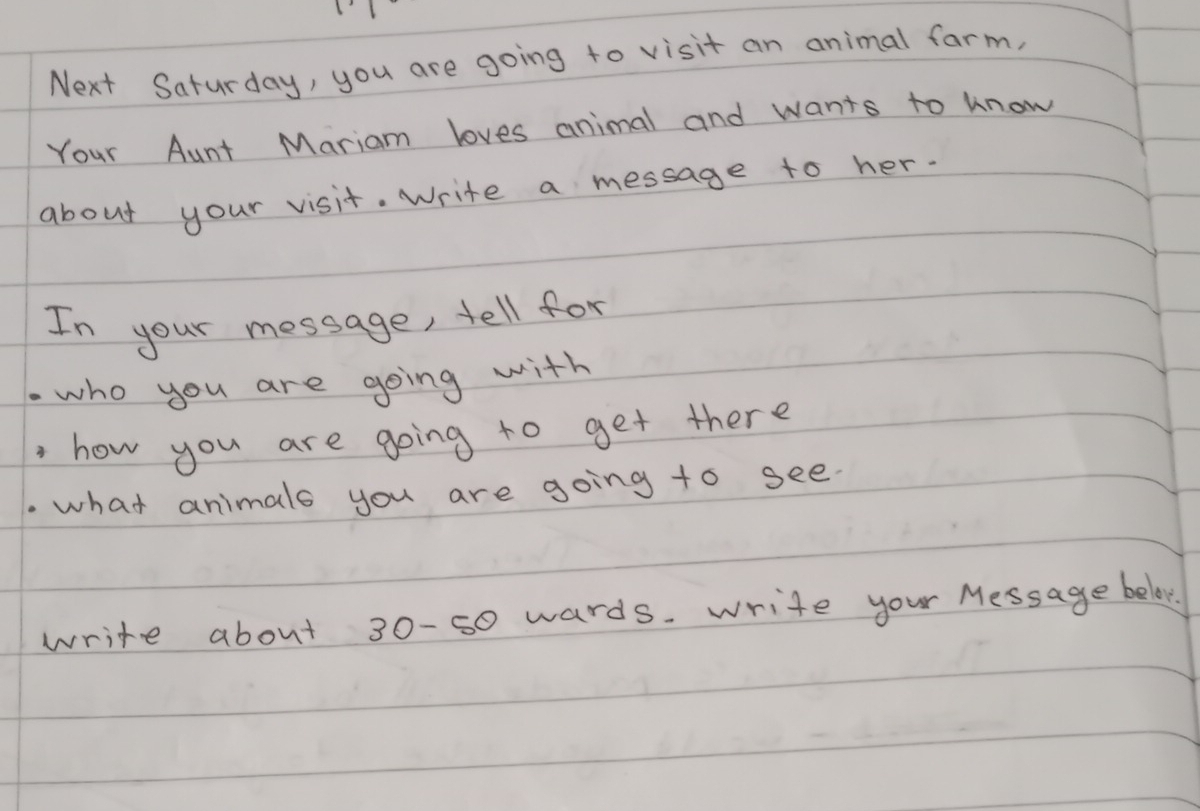 Next Saturday, you are going to visit an animal farm,
Your Aunt Mariam loves animal and wants to know
about your visit. Write a message to her.
In your message, tell for
• who you are going with
• how you are going to get there
• what animals you are going to see.
write about 30-50 wards. write your Message below.